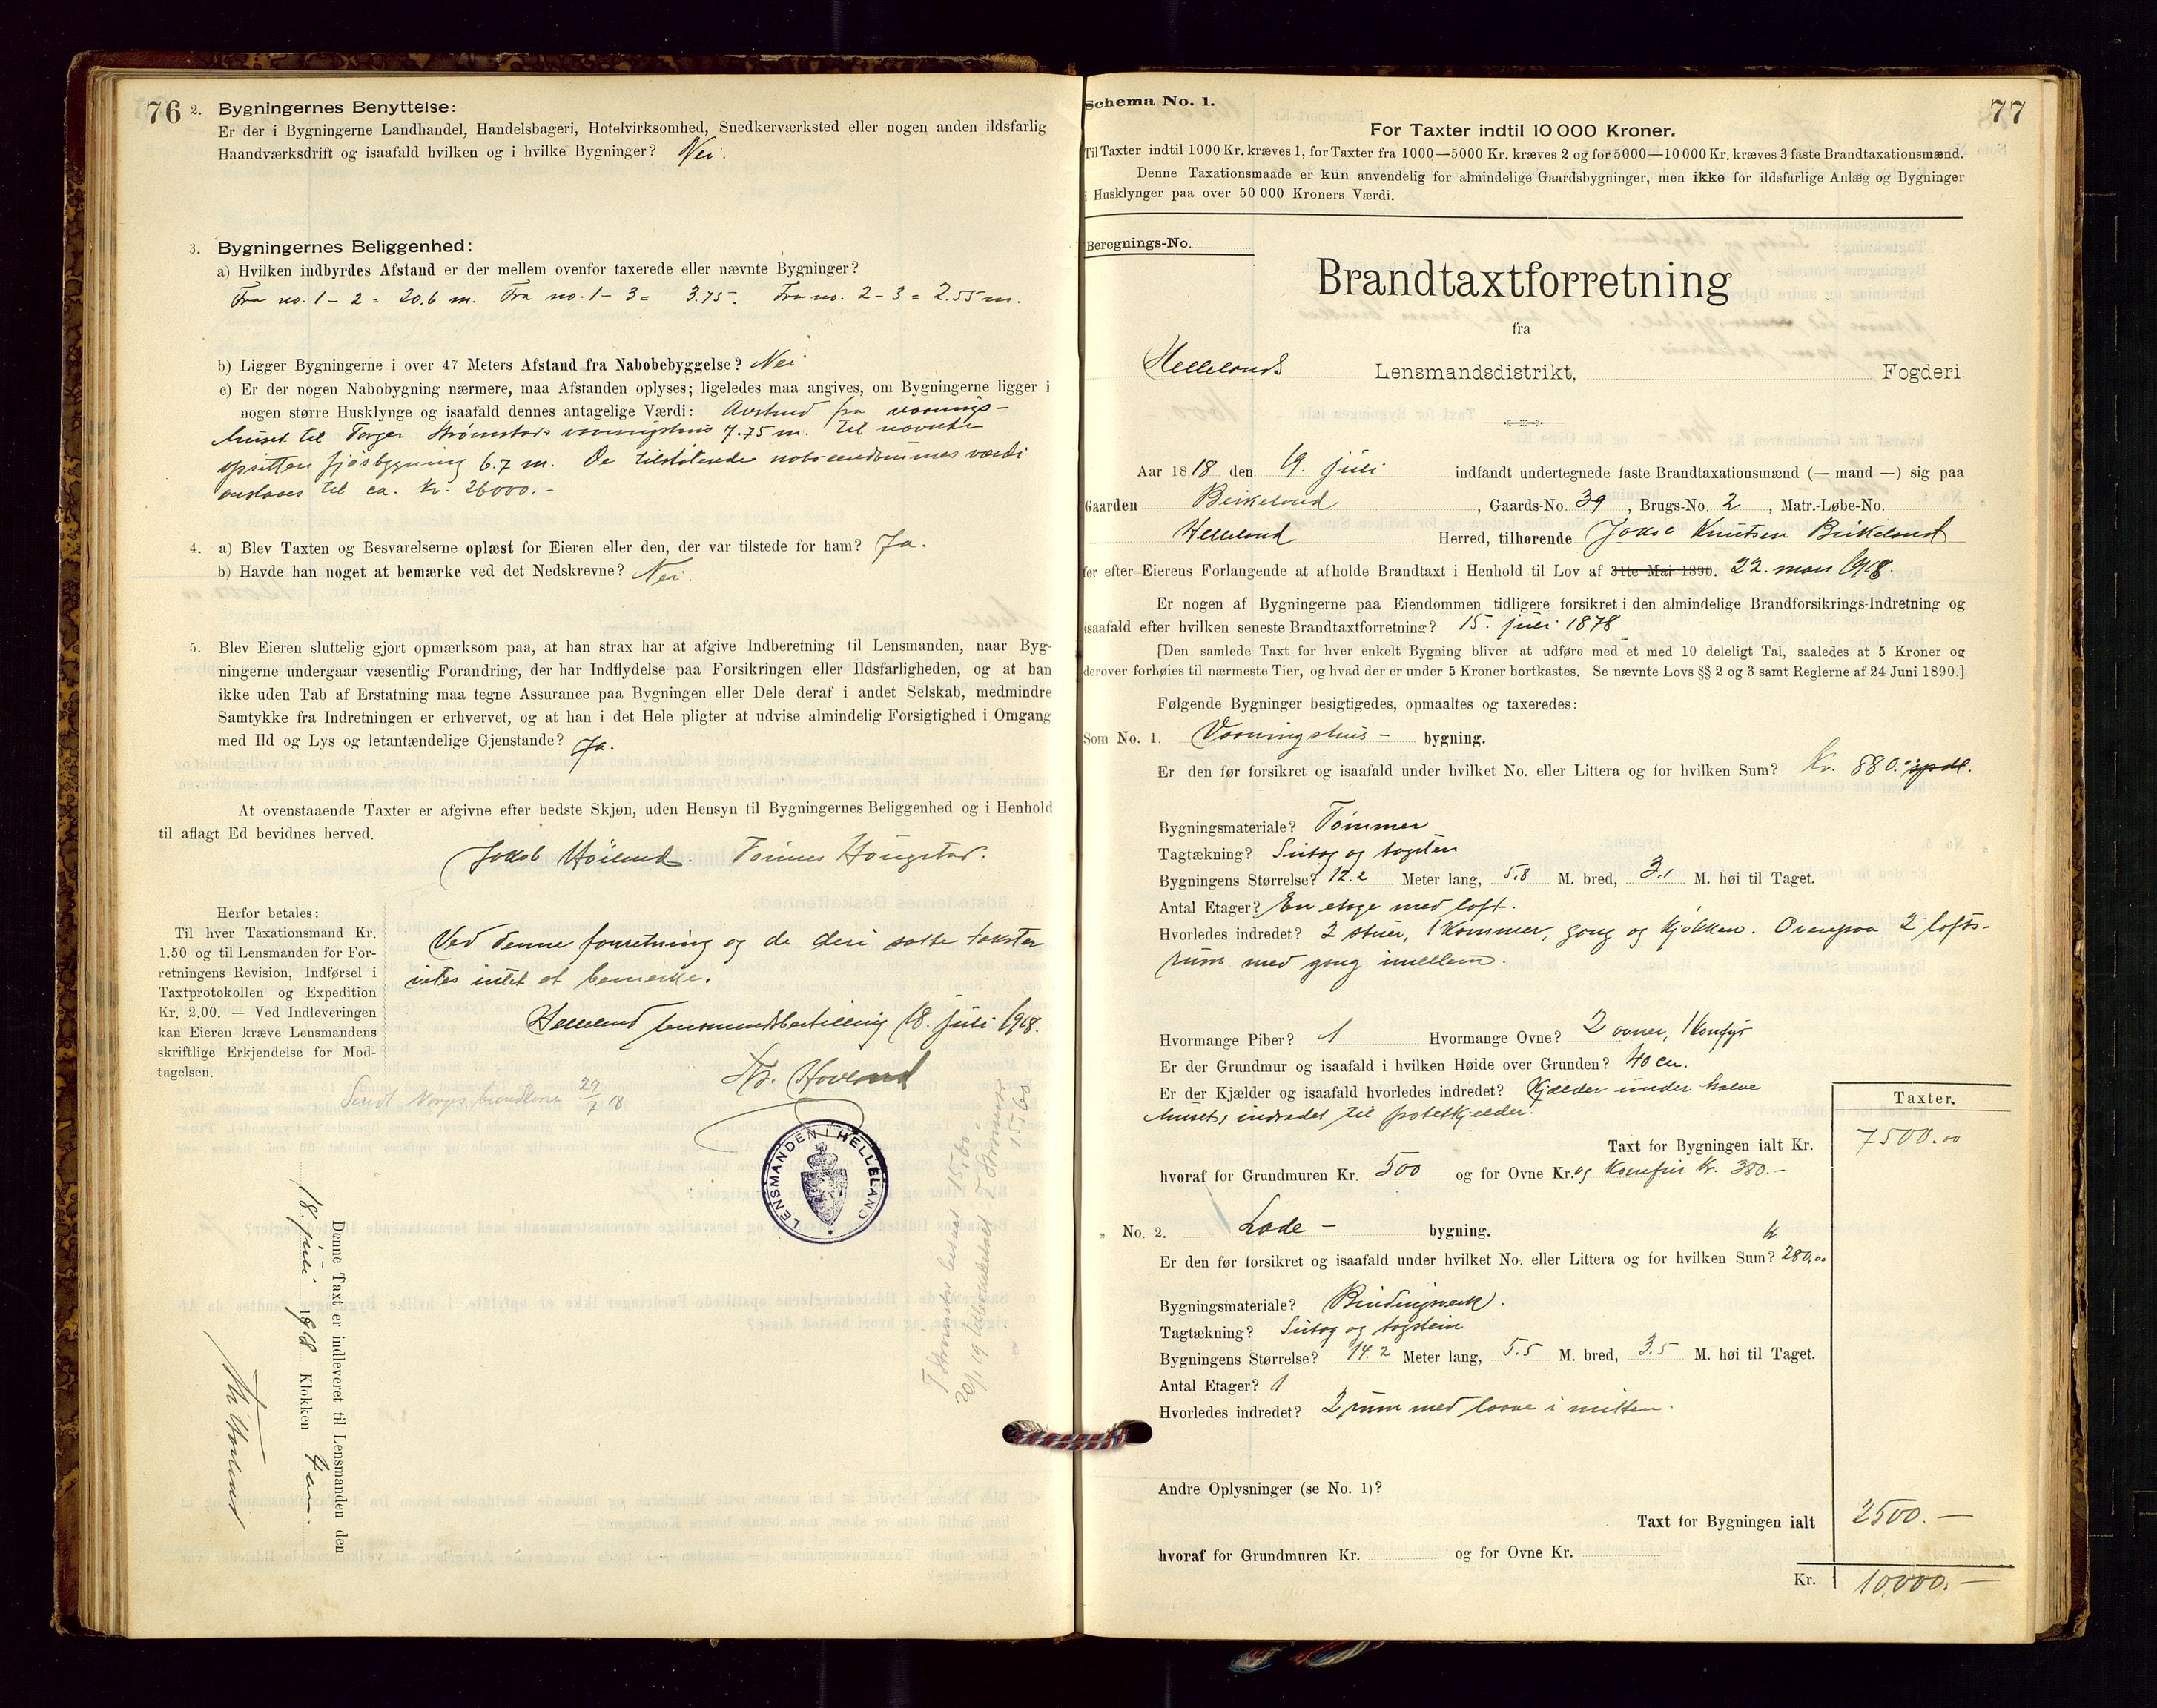 76
2. Bygningernes Benyttelse:
Er der i Bygningerne Landhandel, Handelsbageri, Hotelvirksomhed, Snedkerværksted eller nogen anden ildsfarlig
Haandværksdrift og isaafald hvilken og i hvilke Bygninger? Nei.
3. Bygningernes Beliggenhed:
a) Hvilken indbyrdes Afstand er der mellem ovenfor taxerede eller nævnte Bygninger?
Fra no. 1 - 2 = 20.6 m. Fra no. 1 - 3 = 3.75. Fra no. 2 - 3 = 2.55 m.
b) Ligger Bygningerne i over 47 Meters Afstand fra Nabobebyggelse? Nei
c) Er der nogen Nabobygning nærmere, maa Afstanden oplyses; ligeledes maa angives, om Bygningerne ligger i
nogen større Husklynge og isaafald dennes antagelige Værdi: Avstand fra vaanings-
huset til Torger Strømstads vaaningshus 7.75 m. til nævnte
opsitters fjøsbygning 6.7 m. De tilstøtende naboeiendommes værdi
anslaaes til ca. kr. 26000.-
4. a) Blev Taxten og Besvarelserne oplæst for Eieren eller den, der var tilstede for ham? Ja.
b) Havde han noget at bemærke ved det Nedskrevne? Nei.
5. Blev Eieren sluttelig gjort opmærksom paa, at han strax har at afgive Indberetning til Lensmanden, naar Byg-
ningerne undergaar væsentlig Forandring, der har Indflydelse paa Forsikringen eller Ildsfarligheden, og at han
ikke uden Tab af Erstatning maa tegne Assurance paa Bygningen eller Dele deraf i andet Selskab, medmindre
Samtykke fra Indretningen er erhvervet, og at han i det Hele pligter at udvise almindelig Forsigtighed i Omgang
med Ild og Lys og letantændelige Gjenstande? Ja.
At ovenstaaende Taxter er afgivne efter bedste Skjøn, uden Hensyn til Bygningernes Beliggenhed og i Henhold
til aflagt Ed bevidnes herved.
Jakob Høiland. Tønnes Haugstad.
Herfor betales:
Til hver Taxationsmand Kr.
1.50 og til Lensmanden for For-
retningens Revision, Indførsel i
Taxtprotokollen og Expedition
Kr. 2.00. — Ved Indleveringen
kan Eieren kræve Lensmandens
skriftlige Erkjendelse for Mod-
tagelsen.
Ved denne forretning og de deri satte takster
vites intet at bemerke.
Helleland lensmandsbestilling 18. juli 1918.
Th. Hovland
Sendt Norges brandkasse 29/7 18
LENSMANDEN I HELLELAND
Denne Taxt er indleveret til Lensmanden den
18. juli 1918 Klokken 7 em.
Th. Hovland
77
Schema No. 1.
For Taxter indtil 10 000 Kroner.
Til Taxter indtil 1000 Kr. kræves 1, for Taxter fra 1000—5000 Kr. kræves 2 og for 5000—10 000 Kr. kræves 3 faste Brandtaxationsmænd.
Denne Taxationsmaade er kun anvendelig for almindelige Gaardsbygninger, men ikke for ildsfarlige Anlæg og Bygninger
i Husklynger paa over 50 000 Kroners Værdi.
Beregnings-No.
Brandtaxtforretning
fra
Hellelands Lensmandsdistrikt, Fogderi.
Aar 1818 den 19. juli indfandt undertegnede faste Brandtaxationsmænd (— mand —) sig paa
Gaarden Birkeland, Gaards-No. 39, Brugs-No. 2, Matr.-Løbe-No.
Helleland Herred, tilhørende Jakob Knutsen Birkeland
for efter Eierens Forlangende at afholde Brandtaxt i Henhold til Lov af 31te Mai 1890. 22. mars 1918.
Er nogen af Bygningerne paa Eiendommen tidligere forsikret i den almindelige Brandforsikrings-Indretning og
isaafald efter hvilken seneste Brandtaxtforretning? 15. juli 1878
[Den samlede Taxt for hver enkelt Bygning bliver at udføre med et med 10 deleligt Tal, saaledes at 5 Kroner og
derover forhøies til nærmeste Tier, og hvad der er under 5 Kroner bortkastes. Se nævnte Lovs §§ 2 og 3 samt Reglerne af 24 Juni 1890.]
Følgende Bygninger besigtigedes, opmaaltes og taxeredes:
Som No. 1. Vaaningshus - bygning.
Er den før forsikret og isaafald under hvilket No. eller Littera og for hvilken Sum? Kr. 880.00 spdl.
Bygningsmateriale? Tømmer
Tagtækning? Sutag og tagsten
Bygningens Størrelse? 12.2 Meter lang, 5.8 M. bred, 3.1 M. høi til Taget.
Antal Etager? En etage med loft.
Hvorledes indredet? 2 stuer, 1 kammer, gang og kjøkken. Ovenpaa 2 lofts-
rum med gang imellem.
Hvormange Piber? 1 Hvormange Ovne? 2 ovner, 1 komfyr
Er der Grundmur og isaafald i hvilken Høide over Grunden? 40 cm.
Er der Kjælder og isaafald hvorledes indredet? Kjælder under halve
huset, indredet til potetkjelder.
Taxter.
Taxt for Bygningen ialt Kr. 7500.00
hvoraf for Grundmuren Kr. 500 og for Ovne Kr. og komfur kr. 380.-
" No. 2. Lade - bygning.
Er den før forsikret og isaafald under hvilket No. eller Littera og for hvilken Sum? kr. 280.00
Bygningsmateriale? Bindingsverk.
Tagtækning? Sutag og tagstein
Bygningens Størrelse? 14.2 Meter lang, 5.5 M. bred, 3.5 M. høi til Taget.
Antal Etager? 1
Hvorledes indredet? 2 rum med laave i mitten.
Andre Oplysninger (se No. 1)?
Taxt for Bygningen ialt 2500.—
hvoraf for Grundmuren Kr. og for Ovne Kr.
Kr. 10.000.—